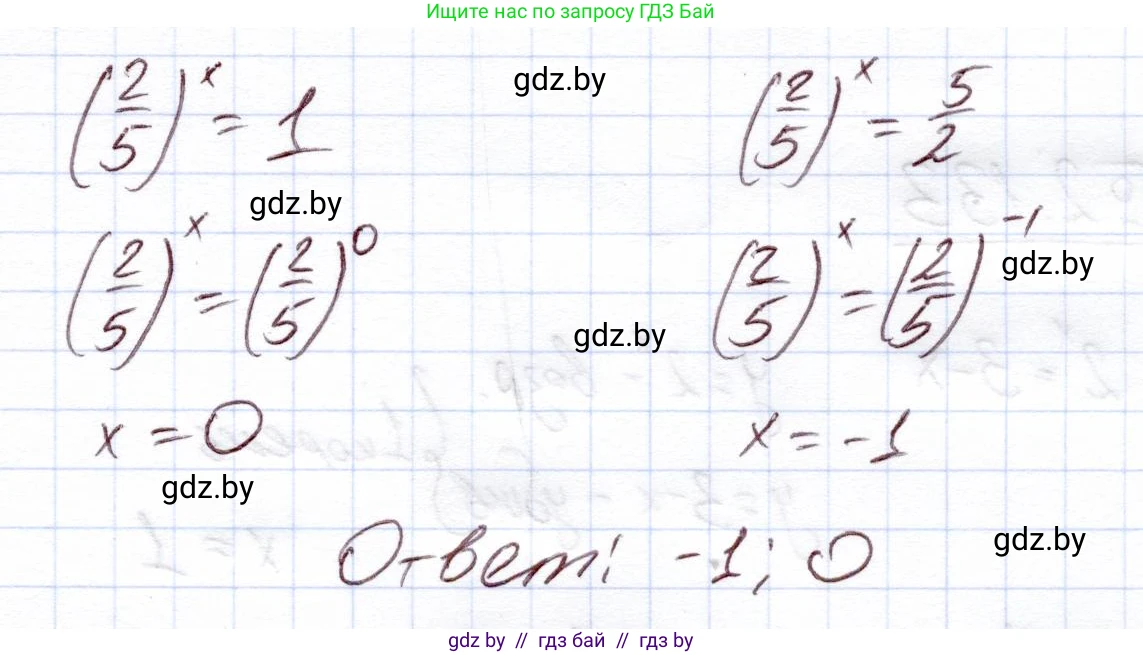 Ищите нас по запросу ГДЗ Бай
(2/5)^x = 1
gdz.by
(2/5)^x = 5/2
gdz.by
(2/5)^x = (2/5)^0
(2/5)^x = (2/5)^-1
gdz.by
gdz.by
x = 0
x = -1
gdz.by
Ответ: -1; 0
gdz.by
gdz by // гдз бай // гдз by